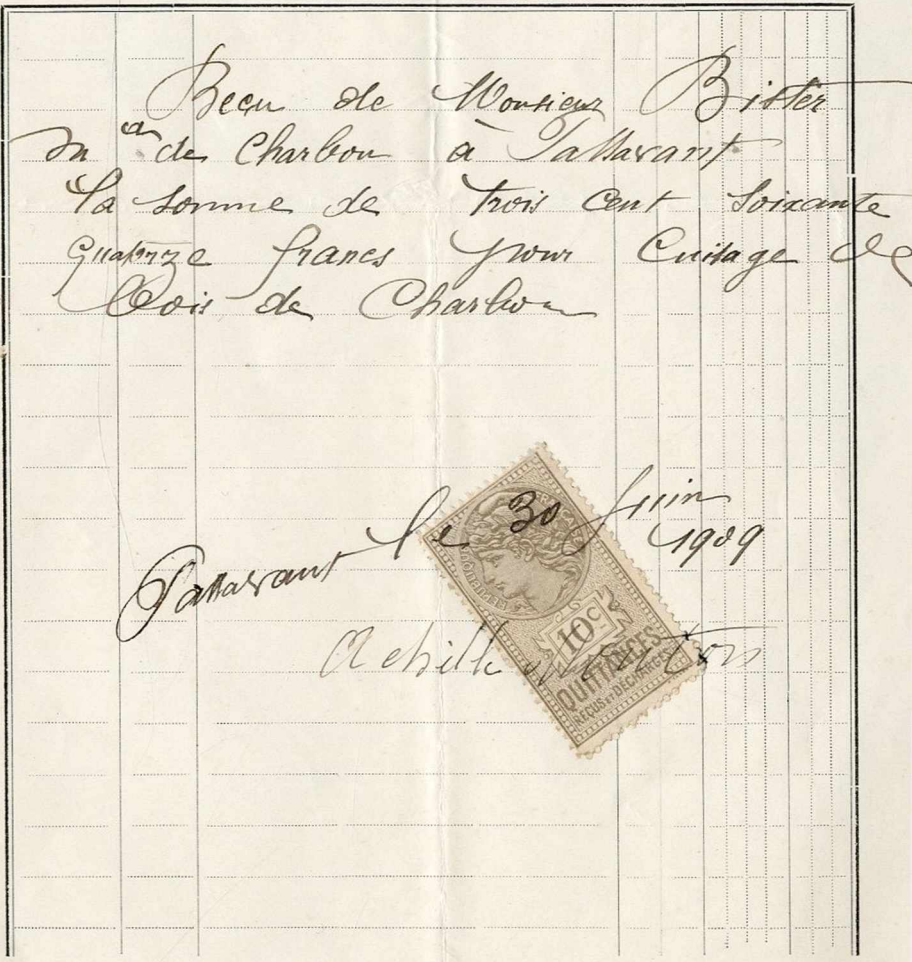 Reçu de Monsieur Bister
Md de Charbon à Passavant
la somme de trois cent soixante
Quatorze francs pour Cuisage de
bois de Charbon
Passavant le 30 Juin
1909
Achille
10c
QUITTANCES
REÇUS ET DÉCHARGES